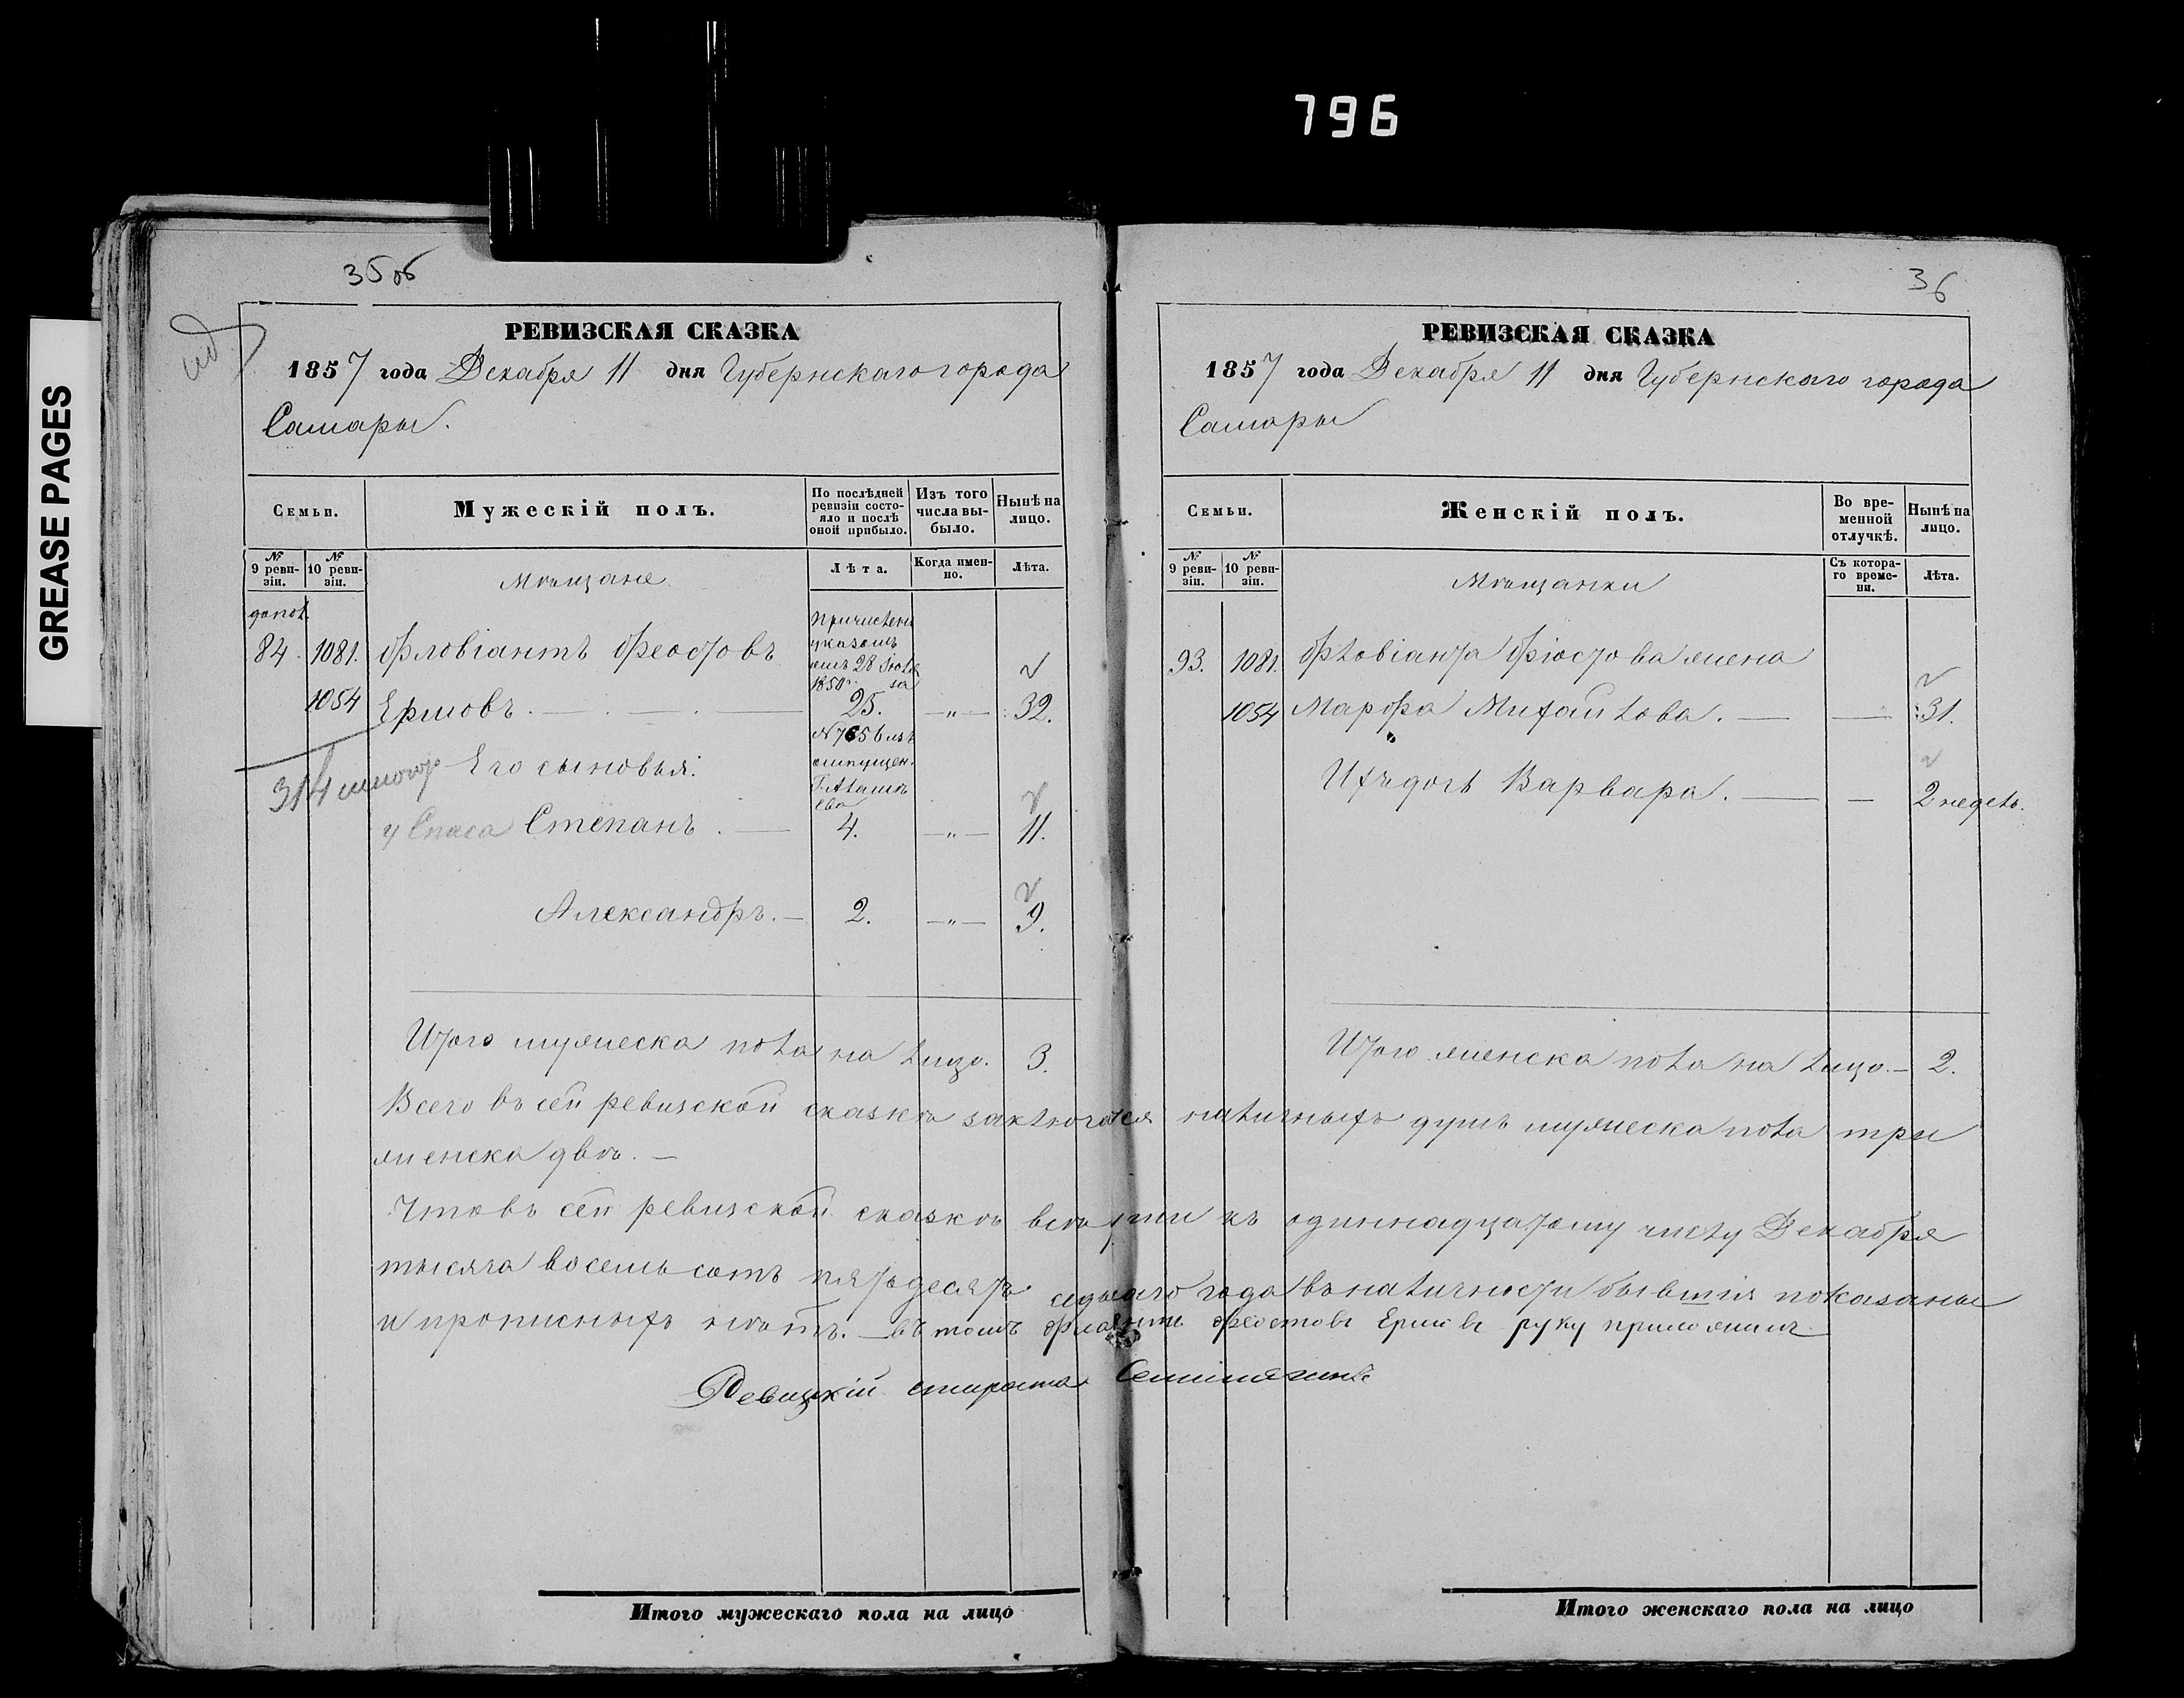 796
GREASE PAGES
35об
РЕВИЗСКАЯ СКАЗКА
1857 года Декабря 11 дня Губернскаго города
Самары.
Семьи.
Мужескій полъ.
По послѣдней ревизіи состо-
яло и послѣ
оной прибыло.
Изъ того
числа вы-
было.
Нынѣ на
лицо.
№ 9 реви-
зіи.
№ 10 реви-
зіи.
Мѣщане
Лѣта.
Когда имен-
но.
Лѣта.
допол.
84. 1081. Фловіантъ Феостовъ
Причислены
указомъ
отъ 28 Іюля
1850 г. за
1054 Ермовъ. 25. — „ — 32.
№ 7656 изъ
отпущен.
Его сыновья:
314
у Спаса Степанъ. 4. — „ — 11.
Александръ. — 2. — „ — 9.
Итого мужеска пола на лицо. 3.
36
РЕВИЗСКАЯ СКАЗКА
1857 года Декабря 11 дня Губернскаго города
Самары
Семьи.
Женскій полъ.
Во вре-
менной
отлучкѣ.
Нынѣ на
лицо.
№ 9 реви-
зіи.
№ 10 реви-
зіи.
Мѣщанки
Съ котора-
го време-
ни.
Лѣта.
93. 1081. Фловіанта Фіостова жена
1054 Марфа Михайлова. — — 31.
Ихъ дочь Варвара. — — 2 недѣль.
Итого женска пола на лицо. — 2.
Всего въ сей ревизской сказкѣ заключается наличныхъ душъ мужеска пола три
женска двѣ. —
Что въ сей ревизской сказкѣ всѣ души къ одиннадцатому числу Декабря
тысяча восемь сотъ пятьдесятъ седьмаго года въ наличности бывшія показаны
и прописныхъ нѣтъ. — въ томъ Феостовъ Ермовъ руку приложилъ
староста
Итого мужескаго пола на лицо
Итого женскаго пола на лицо